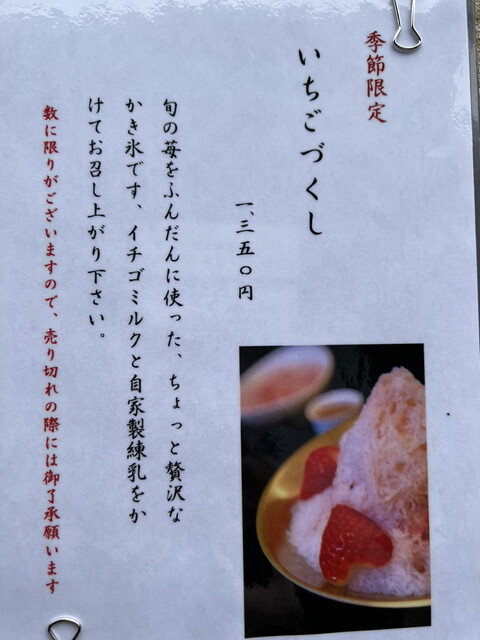 季節限定
いちごづくし
一、三五〇円
旬の苺をふんだんに使った、ちょっと贅沢な
かき氷です、イチゴミルクと自家製練乳をか
けてお召し上がり下さい。
数に限りがございますので、売り切れの際には御了承願います